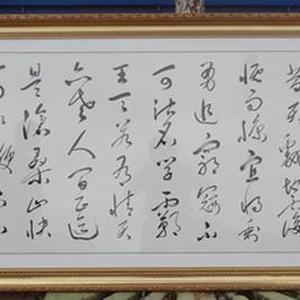 昔天翻地覆
慨而慷宜将剩
勇追窮寇不
可沽名学霸
王天若有情天
亦老人间正道
是滄桑山快